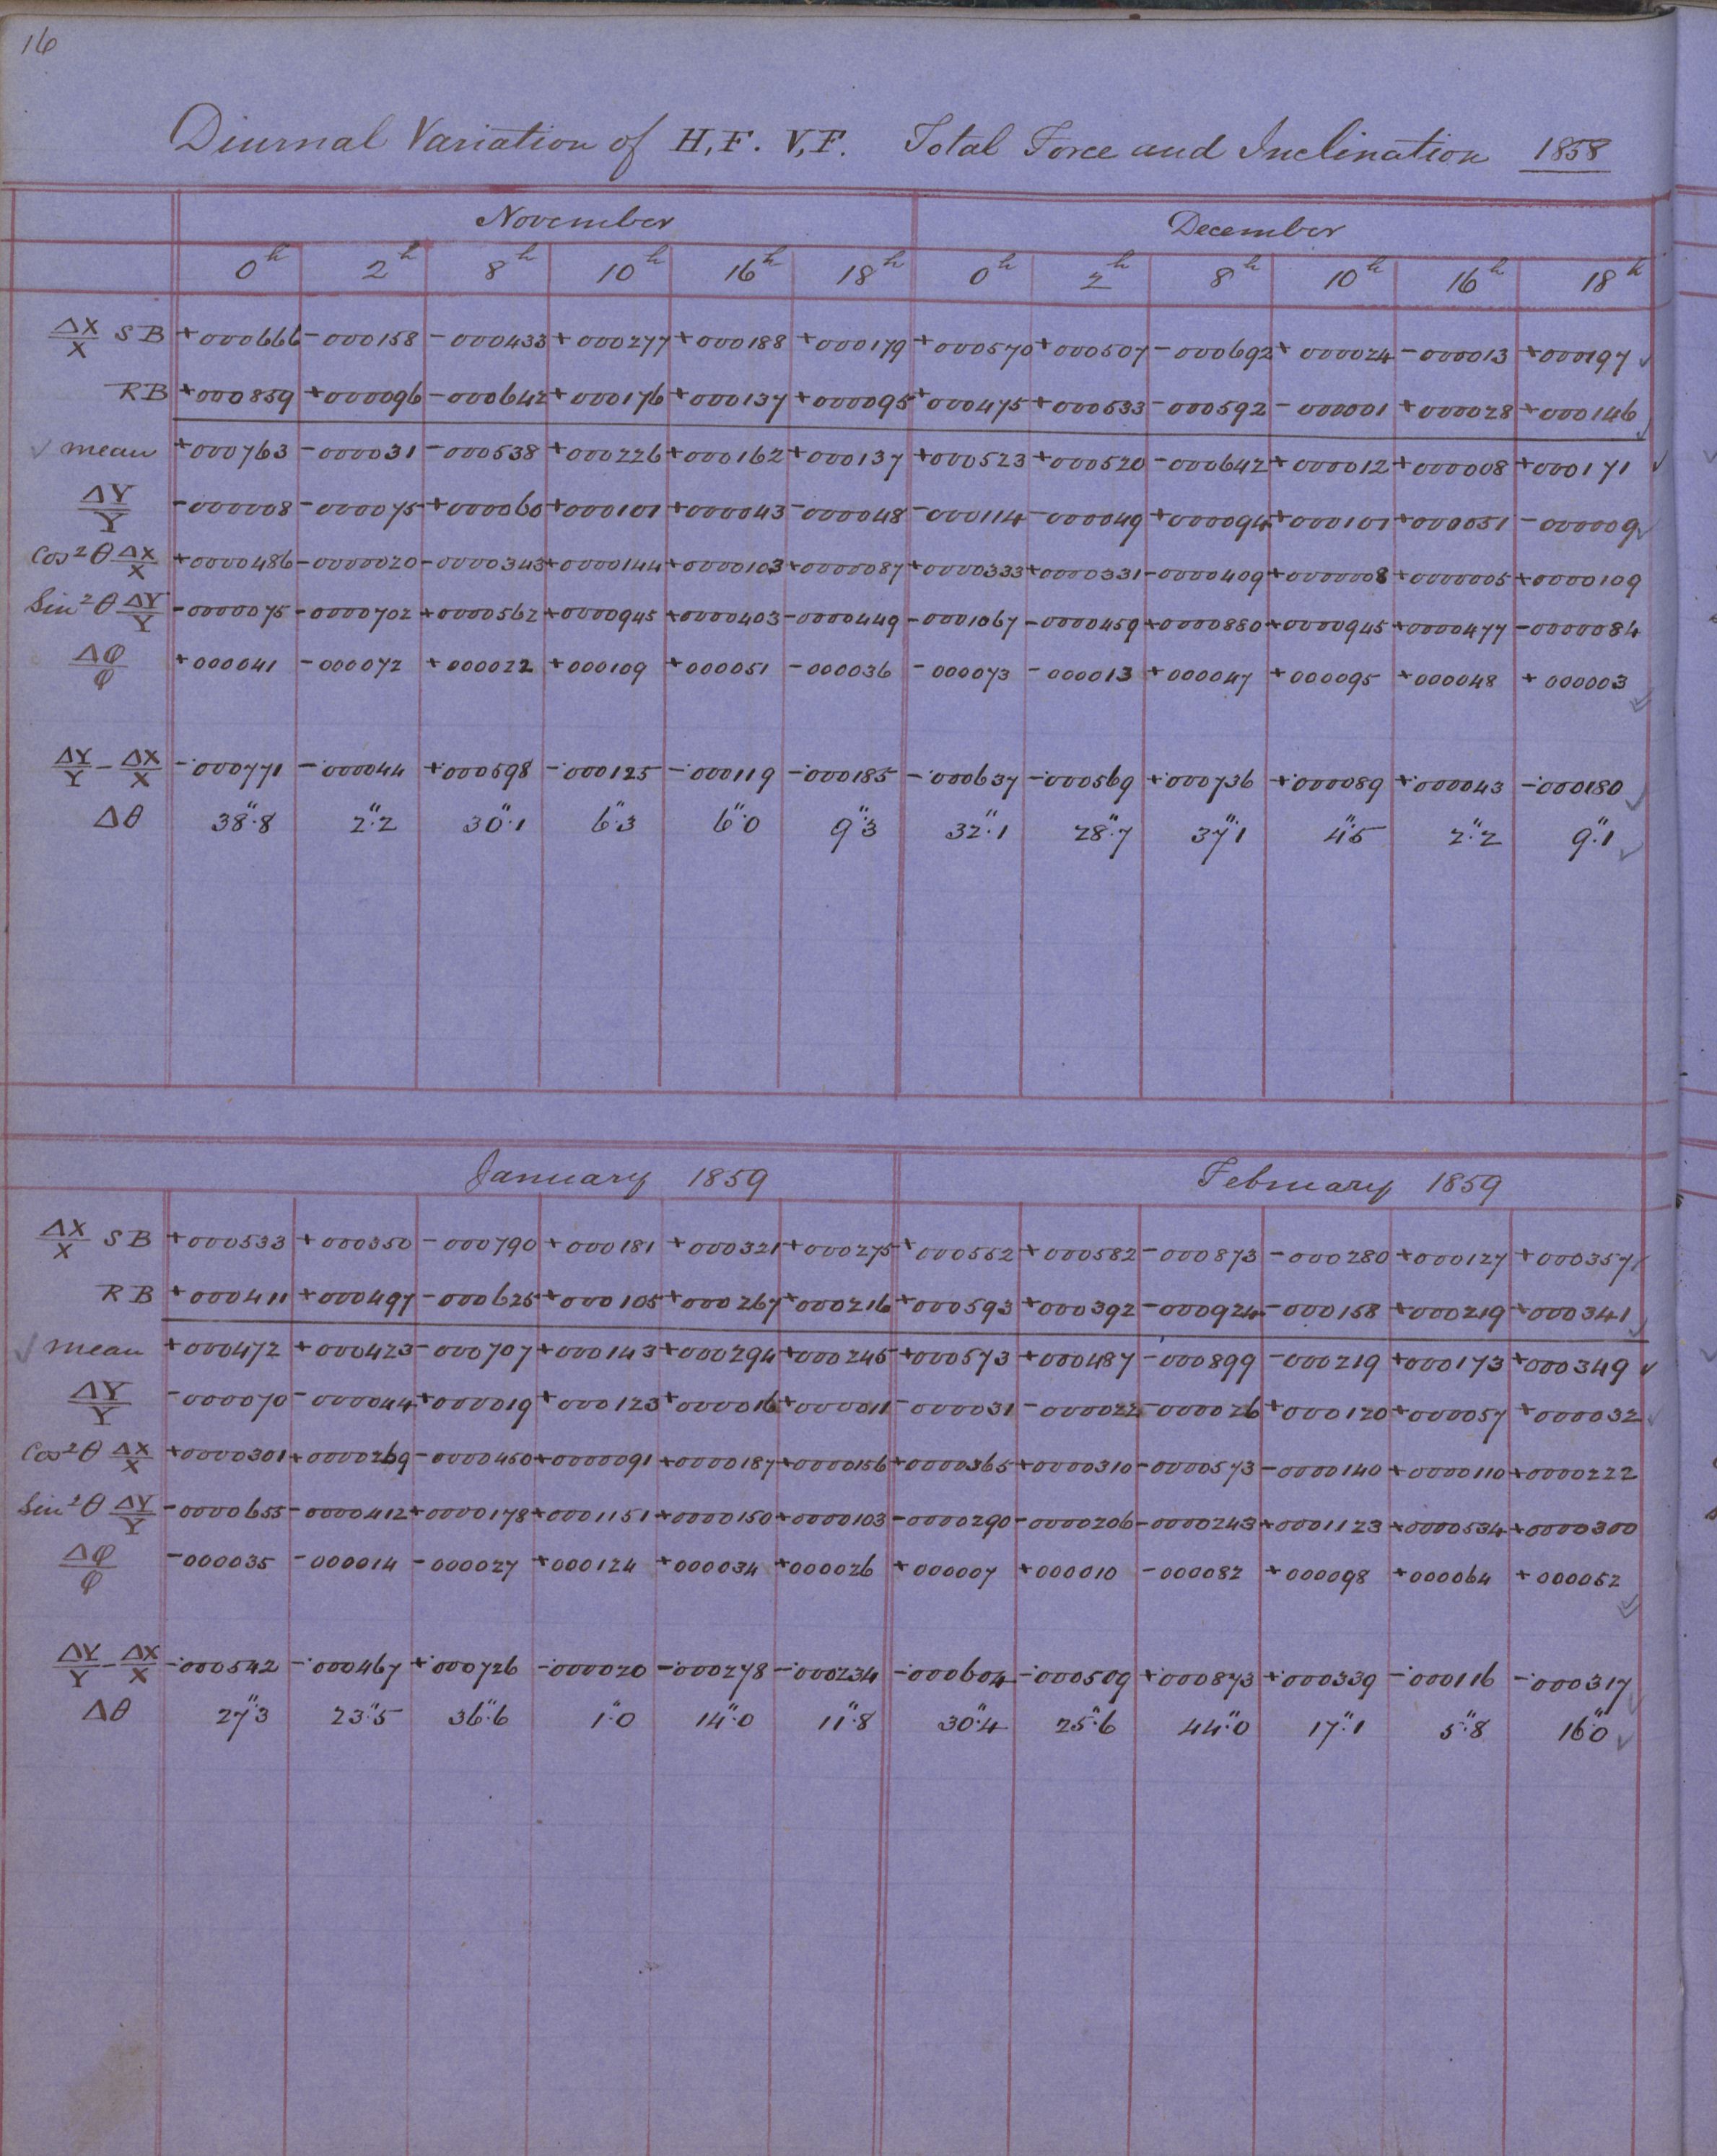 16
Diurnal Variation of H,F. V,F. Total Force and Inclination 1858
November December
0h 2h 8h 10h 16h 18h 0h 2h 8h 10h 16h 18h
ΔX/X SB +000666 -000158 -000433 +000277 +000188 +000179 +000570 +000507 -000692 +000024 -000013 +000197 ✓
RB +000859 +000096 -000642 +000176 +000137 +000095 +000475 +000533 -000592 -000001 +000028 +000146 ✓
✓ mean +000763 -000031 -000538 +000226 +000162 +000137 +000523 +000520 -000642 +000012 +000008 +000171 ✓
ΔY/Y -000008 -000075 +000060 +000101 +000043 -000048 -000114 -000049 +000094 +000101 +000051 -000009 ✓
Cos²θ ΔX/X +0000486 -0000020 -0000343 +0000144 +0000103 +0000087 +0000333 +0000331 -0000409 +0000008 +0000005 +0000109
Sin²θ ΔY/Y -0000075 -0000702 +0000562 +0000945 +0000403 -0000449 -0001067 -0000459 +0000880 +0000945 +0000477 -0000084
Δφ/φ +000041 -000072 +000022 +000109 +000051 -000036 -000073 -000013 +000047 +000095 +000048 +000003 ✓
ΔY/Y - ΔX/X -·000771 -·000044 +·000598 -·000125 -·000119 -·000185 -·000637 -·000569 +·000736 +·000089 +·000043 -·000180 ✓
Δθ 38″.8 2″.2 30″.1 6″.3 6″.0 9″.3 32″.1 28″.7 37″.1 4″.5 2″.2 9″.1 ✓
January 1859 February 1859
ΔX/X SB +000533 +000350 -000790 +000181 +000321 +000275 +000552 +000582 -000873 -000280 +000127 +000357 ✓
RB +000411 +000497 -000625 +000105 +000267 +000216 +000593 +000392 -000924 -000158 +000219 +000341 ✓
✓ mean +000472 +000423 -000707 +000143 +000294 +000245 +000573 +000487 -000899 -000219 +000173 +000349 ✓
ΔY/Y -000070 -000044 +000019 +000123 +000016 +000011 -000031 -000022 -000026 +000120 +000057 +000032 ✓
Cos²θ ΔX/X +0000301 +0000269 -0000450 +0000091 +0000187 +0000156 +0000365 +0000310 -0000573 -0000140 +0000110 +0000222
Sin²θ ΔY/Y -0000655 -0000412 +0000178 +0001151 +0000150 +0000103 -0000290 -0000206 -0000243 +0001123 +0000534 +0000300
Δφ/φ -000035 -000014 -000027 +000124 +000034 +000026 +000007 +000010 -000082 +000098 +000064 +000052 ✓
ΔY/Y - ΔX/X -·000542 -·000467 +·000726 -·000020 -·000278 -·000234 -·000604 -·000509 +·000873 +·000339 -·000116 -·000317 ✓
Δθ 27″.3 23″.5 36″.6 1″.0 14″.0 11″.8 30″.4 25″.6 44″.0 17″.1 5″.8 16″.0 ✓